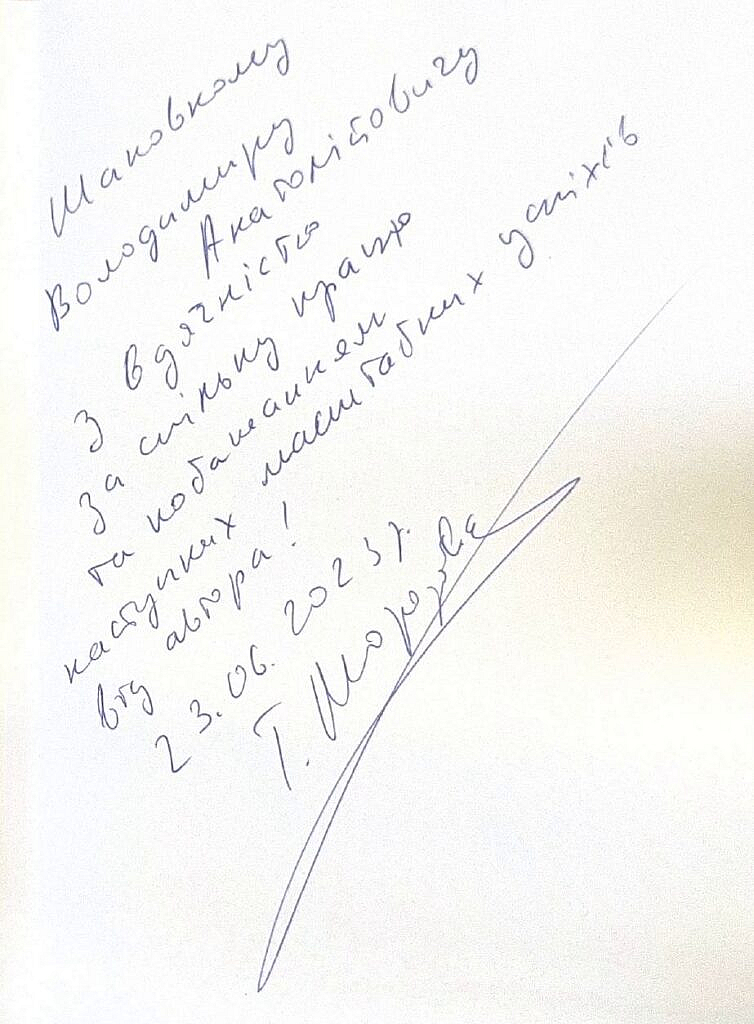 Шановному
Володимиру
Анатолійовичу
З вдячністю
за спільну працю
та побажанням
наступних масштабних успіхів
від автора!
23.06.2023 р.
Т. Морозова